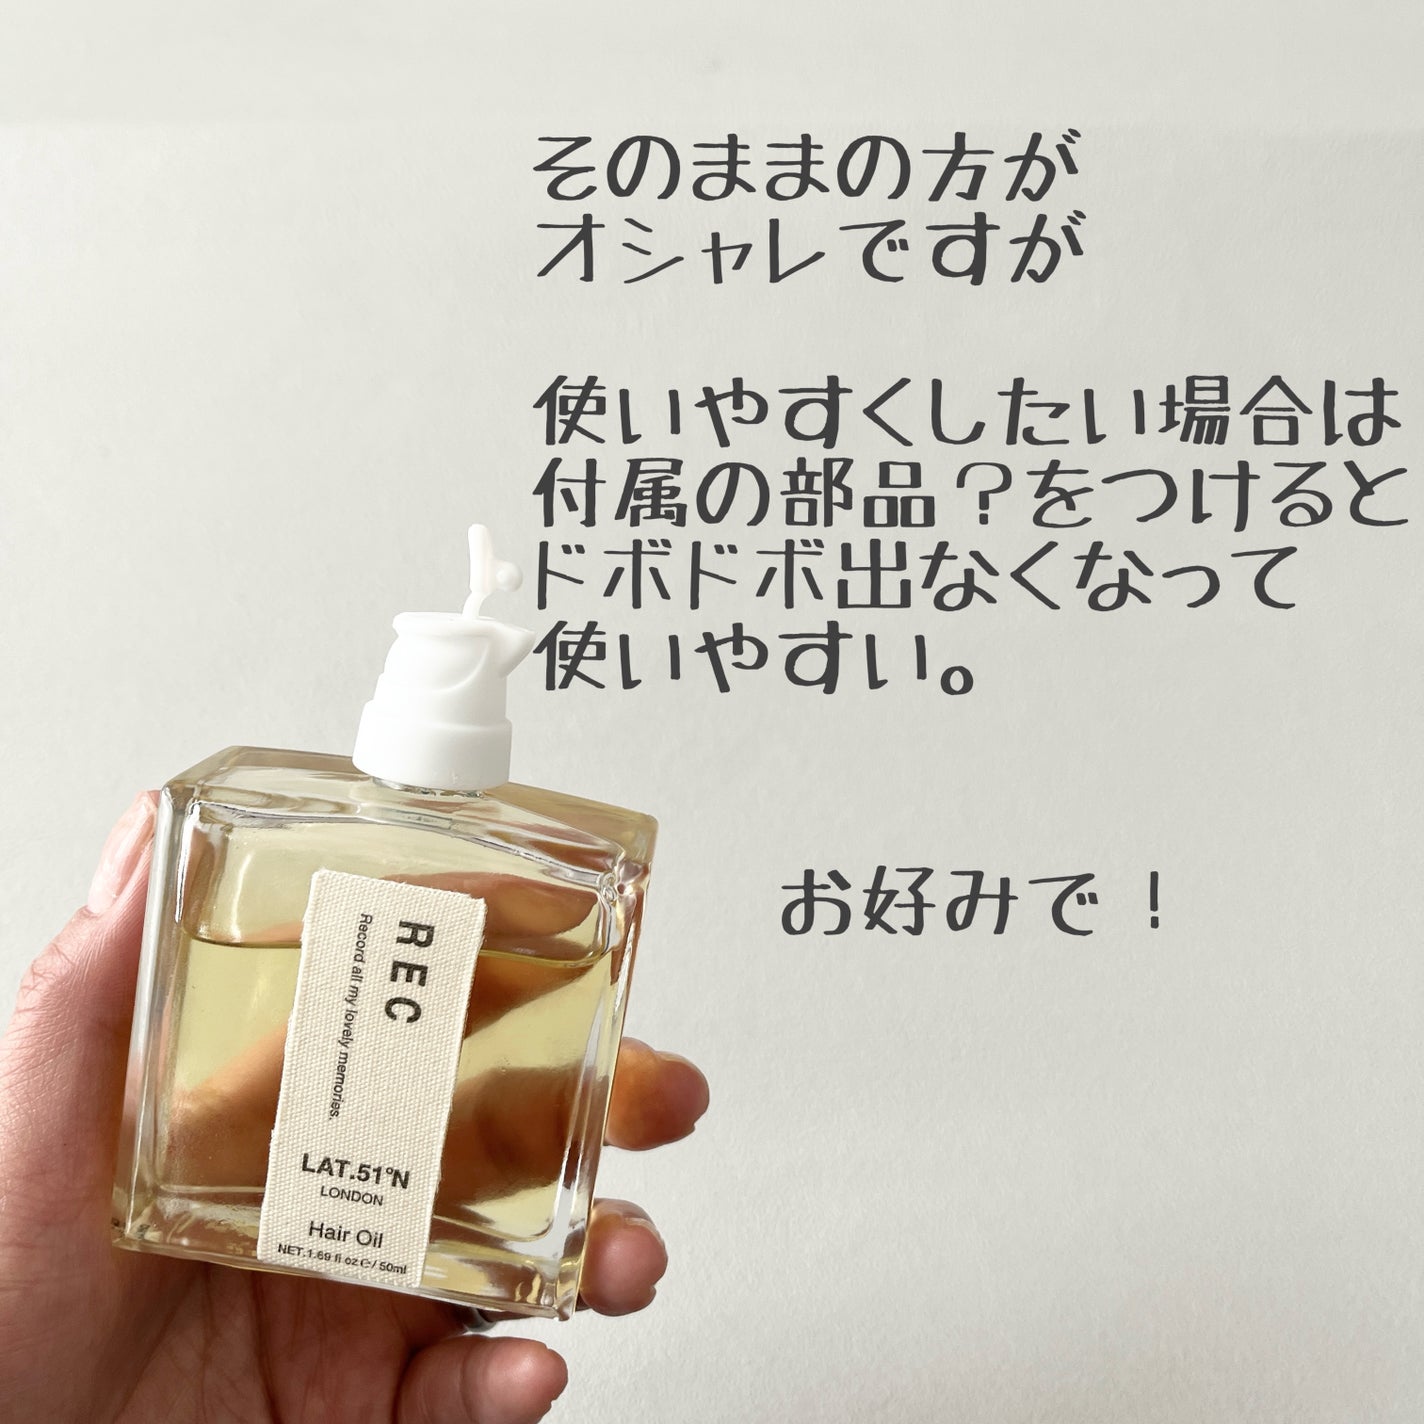 そのままの方が
オシャレですが
使いやすくしたい場合は
付属の部品？をつけると
ドボドボ出なくなって
使いやすい。
お好みで！
REC
Record all my lovely memories.
LAT.51°N
LONDON
Hair Oil
NET.1.69 fl oz ℮ / 50ml